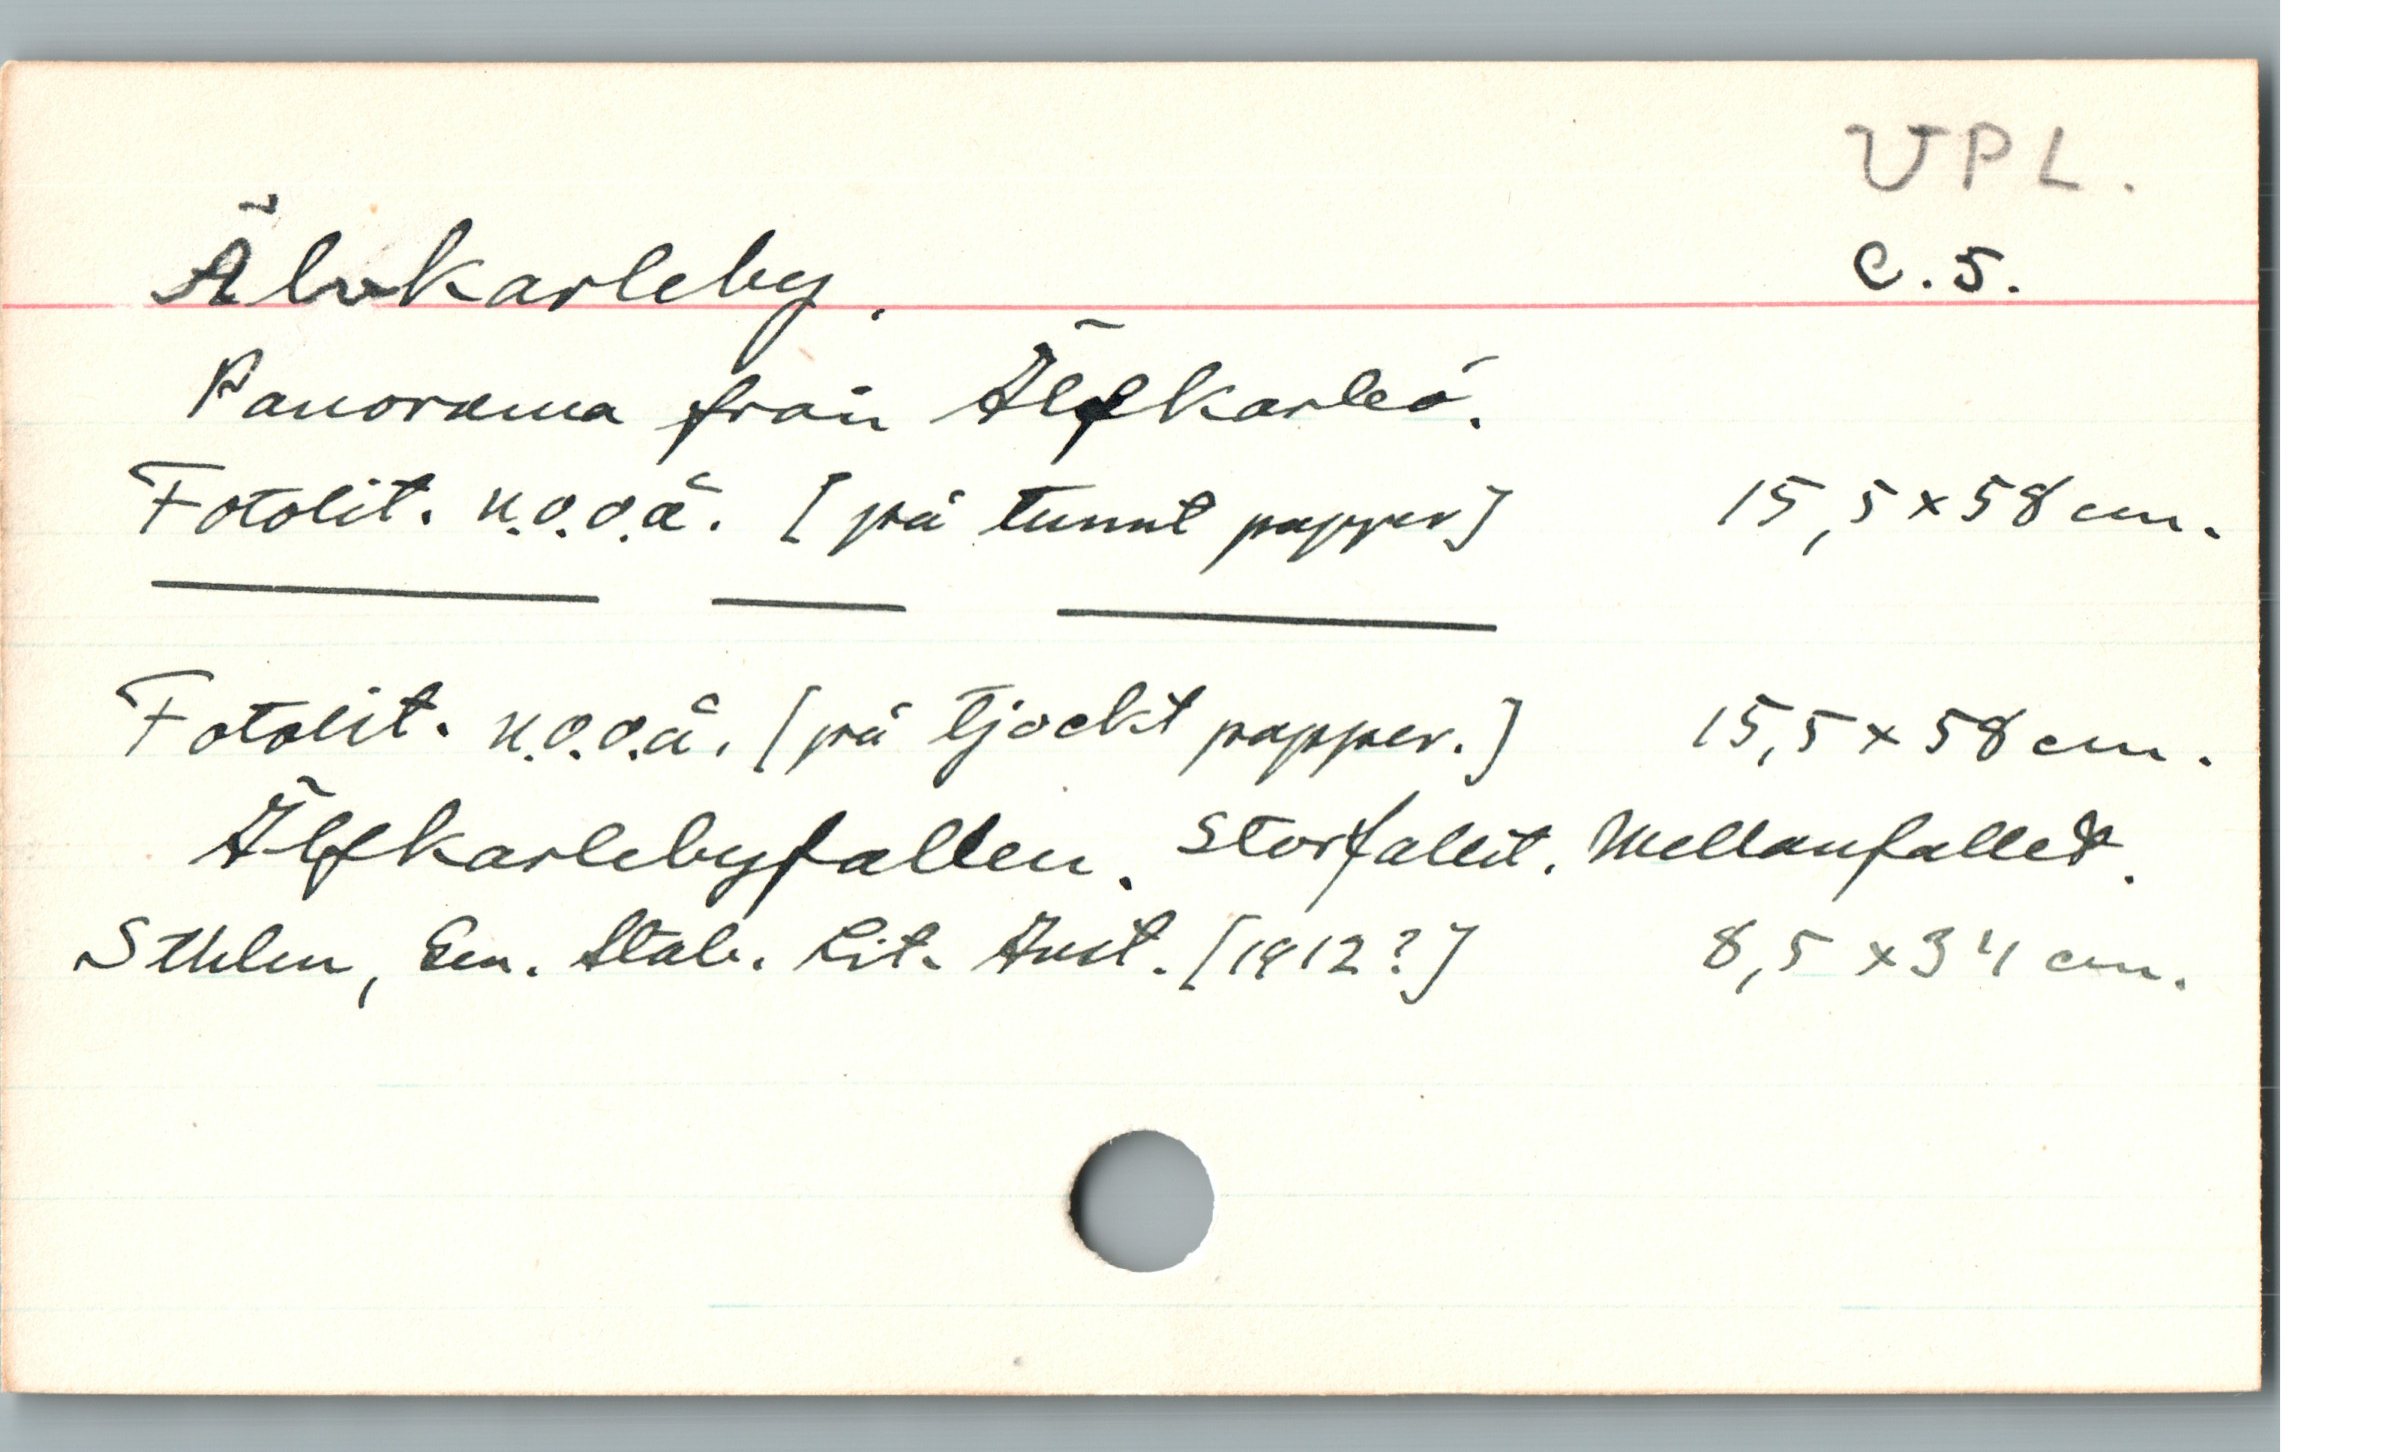 UPL.
Älvkarleby.
C.5.
Panorama från Älfkarleö.
Fotolit. u.o.o.å. [på tunnt papper] 15,5 x 58 cm.
Fotolit. u.o.o.å. [på tjockt papper.] 15,5 x 58 cm.
Älfkarlebyfallen. Storfallet. Mellanfallet.
Sthlm, Gen. Stab. Lit. Anst. [1912?] 8,5 x 34 cm.